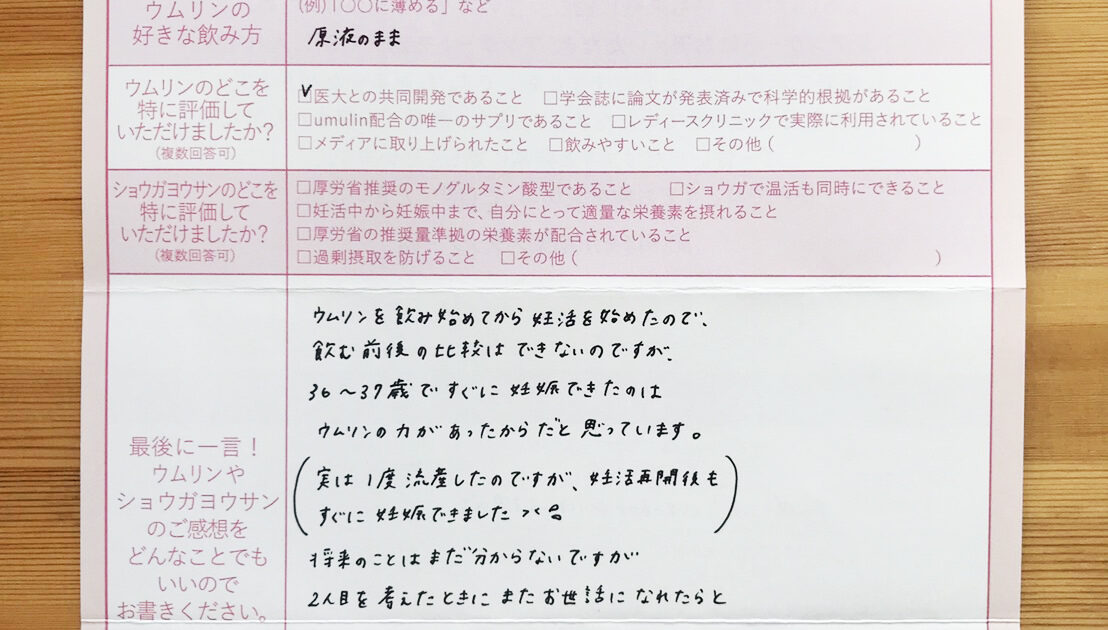 ウムリンの
好きな飲み方
(例)「○○に薄める」など
原液のまま
ウムリンのどこを
特に評価して
いただけましたか？
(複数回答可)
☑医大との共同開発であること □学会誌に論文が発表済みで科学的根拠があること
□umulin配合の唯一のサプリであること □レディースクリニックで実際に利用されていること
□メディアに取り上げられたこと □飲みやすいこと □その他 ( )
ショウガヨウサンのどこを
特に評価して
いただけましたか？
(複数回答可)
□厚労省推奨のモノグルタミン酸型であること □ショウガで温活も同時にできること
□妊活中から妊娠中まで、自分にとって適量な栄養素を摂れること
□厚労省の推奨量準拠の栄養素が配合されていること
□過剰摂取を防げること □その他 ( )
最後に一言！
ウムリンや
ショウガヨウサン
のご感想を
どんなことでも
いいので
お書きください。
ウムリンを飲み始めてから妊活を始めたので、
飲む前後の比較はできないのですが、
36～37歳ですぐに妊娠できたのは
ウムリンの力があったからだと思っています。
(実は1度流産したのですが、妊活再開後も
すぐに妊娠できました)
将来のことはまだ分からないですが
2人目を考えたときにまたお世話になれたらと